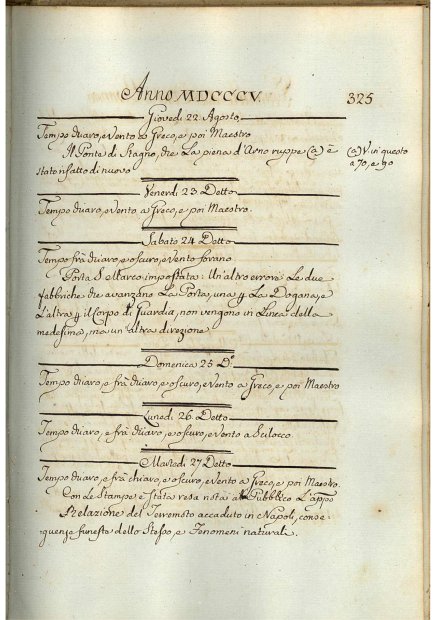 Anno MDCCCV.
325
Giovedi 22 Agosto
Tempo chiaro, e Vento a Greco, e poi Maestro
Il Ponte di Stagno, che La piena d'Arno ruppe (a) è
(a) V. in questo
a 70, e 90
stato rifatto di nuovo
Venerdi 23 Detto
Tempo chiaro, e Vento a Greco, e poi Maestro.
Sabato 24 Detto
Tempo frà chiaro, e oscuro, e vento forano
Porta S. Marco impostata: Un'altro errore Le due
fabbriche che avanzano La Porta, una p La Dogana, e
L'altra p il Corpo di Guardia, non vengono in Linea della
medesima, ma un'altra direzione
Domenica 25 Do.
Tempo chiaro, e frà chiaro, e oscuro, e Vento a Greco, e poi Maestro
Lunedi 26 Detto
Tempo chiaro, e frà chiaro, e oscuro, e Vento a Scilocco.
Martedi 27 Detto
Tempo chiaro, e frà chiaro, e oscuro, e Vento a Greco, e poi Maestro.
Con Le Stampe è stata resa nota al Pubblico L'app
Relazione del Terremoto accaduto in Napoli, conse
guenze funeste dello Stesso, e Fenomeni naturali.